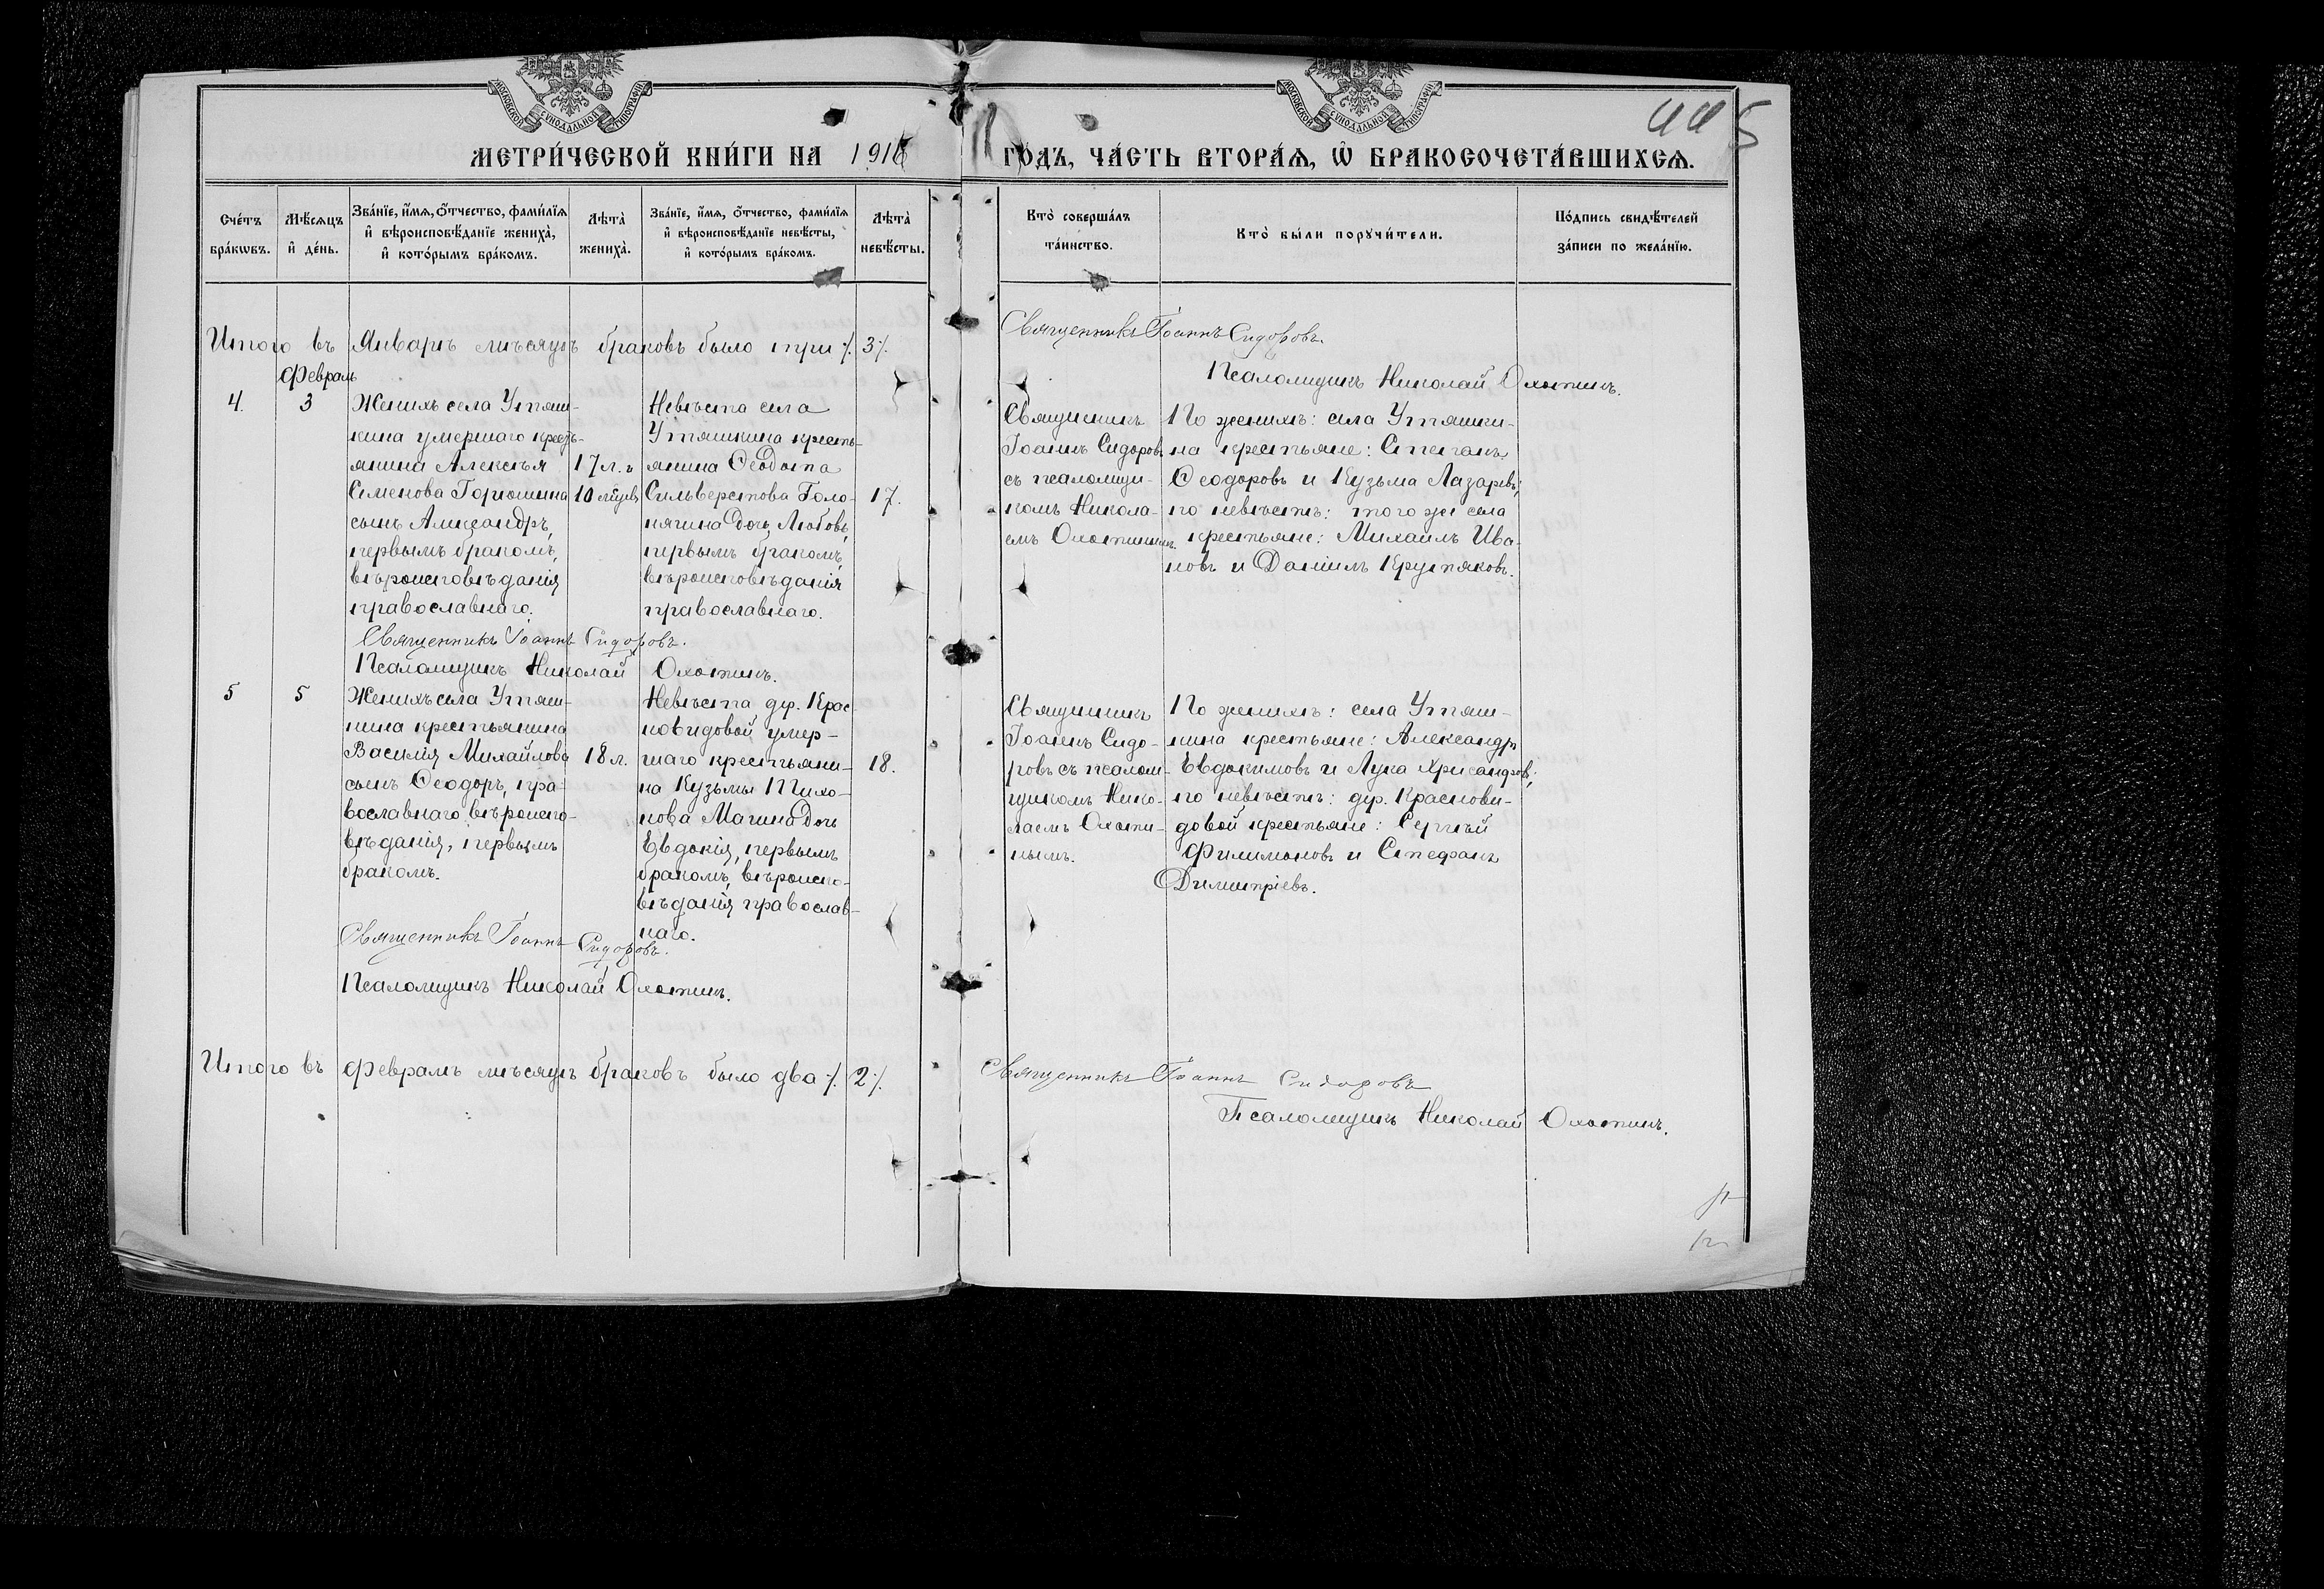 МОСКОВСКОЙ СѴНОДАЛЬНОЙ ТИПОГРАФІИ
МОСКОВСКОЙ СѴНОДАЛЬНОЙ ТИПОГРАФІИ
МЕТРИ́ЧЕСКОЙ КНИ́ГИ НА 1916
ГО́ДЪ, ЧА́СТЬ ВТОРА́Ѧ, Ѽ БРАКОСОЧЕТА́ВШИХСѦ.
445
Сче́тъ бра́кѡвъ.
Мѣ́сѧцъ и҆ де́нь.
Зва́нїе, и҆́мѧ, ѻ҆́тчество, фами́лїѧ и҆ вѣроисповѣ́данїе жениха̀, и҆ кото́рымъ бра́комъ.
Лѣта̀ жениха̀.
Зва́нїе, и҆́мѧ, ѻ҆́тчество, фами́лїѧ и҆ вѣроисповѣ́данїе невѣ́сты, и҆ кото́рымъ бра́комъ.
Лѣта̀ невѣ́сты.
Кто̀ соверша́лъ та́инство.
Кто̀ бы́ли порꙋчи́тели.
По́дпись свидѣ́телей за́писи по жела́нїю.
Итого въ Январѣ мѣсяцѣ браковъ было три ·/. 3 ·/.
Священникъ Іоаннъ Сидоровъ.
Псаломщикъ Николай Охотинъ.
Февраль
4.
3
Женихъ села Утяш-
кина умершаго кресть-
янина Алексѣя
Семенова Горюшина
сынъ Александръ,
первымъ бракомъ,
вѣроисповѣданія
православнаго.
17 л. и
10 мѣсяц.
Невѣста села
Утяшкина кресть-
янина Ѳеодота
Сильверстова Голо-
нягина дочь Любовь,
первымъ бракомъ,
вѣроисповѣданія
православнаго.
17.
Священникъ
Іоаннъ Сидоровъ
съ псаломщи-
комъ Никола-
емъ Охотинымъ.
По женихѣ: села Утяшки-
на крестьяне: Степанъ
Ѳеодоровъ и Кузьма Лазаревъ;
по невѣстѣ: того же села
крестьяне: Михаилъ Ива-
новъ и Даніилъ Крупяковъ.
Священникъ Іоаннъ Сидоровъ.
Псаломщикъ Николай Охотинъ.
5
5
Женихъ села Утяш-
кина крестьянина
Василія Михайлова
сынъ Ѳеодоръ, пра-
вославнаго вѣроиспо-
вѣданія, первымъ
бракомъ.
18 л.
Невѣста дер. Крас-
новидовой умер-
шаго крестьяни-
на Кузьмы Тихо-
нова Магина дочь
Евдокія, первымъ
бракомъ, вѣроиспо-
вѣданія православ-
наго.
18.
Священникъ
Іоаннъ Сидо-
ровъ съ псалом-
щикомъ Нико-
лаемъ Охоти-
нымъ.
По женихѣ: села Утяш-
кина крестьяне: Александръ
Евдокимовъ и Лука Хрисанфовъ;
по невѣстѣ: дер. Краснови-
довой крестьяне: Сергѣй
Филимоновъ и Стефанъ
Димитріевъ.
Священникъ Іоаннъ Сидоровъ.
Псаломщикъ Николай Охотинъ.
Итого въ Февралѣ мѣсяцѣ браковъ было два ·/. 2 ·/.
Священникъ Іоаннъ Сидоровъ
Псаломщикъ Николай Охотинъ.